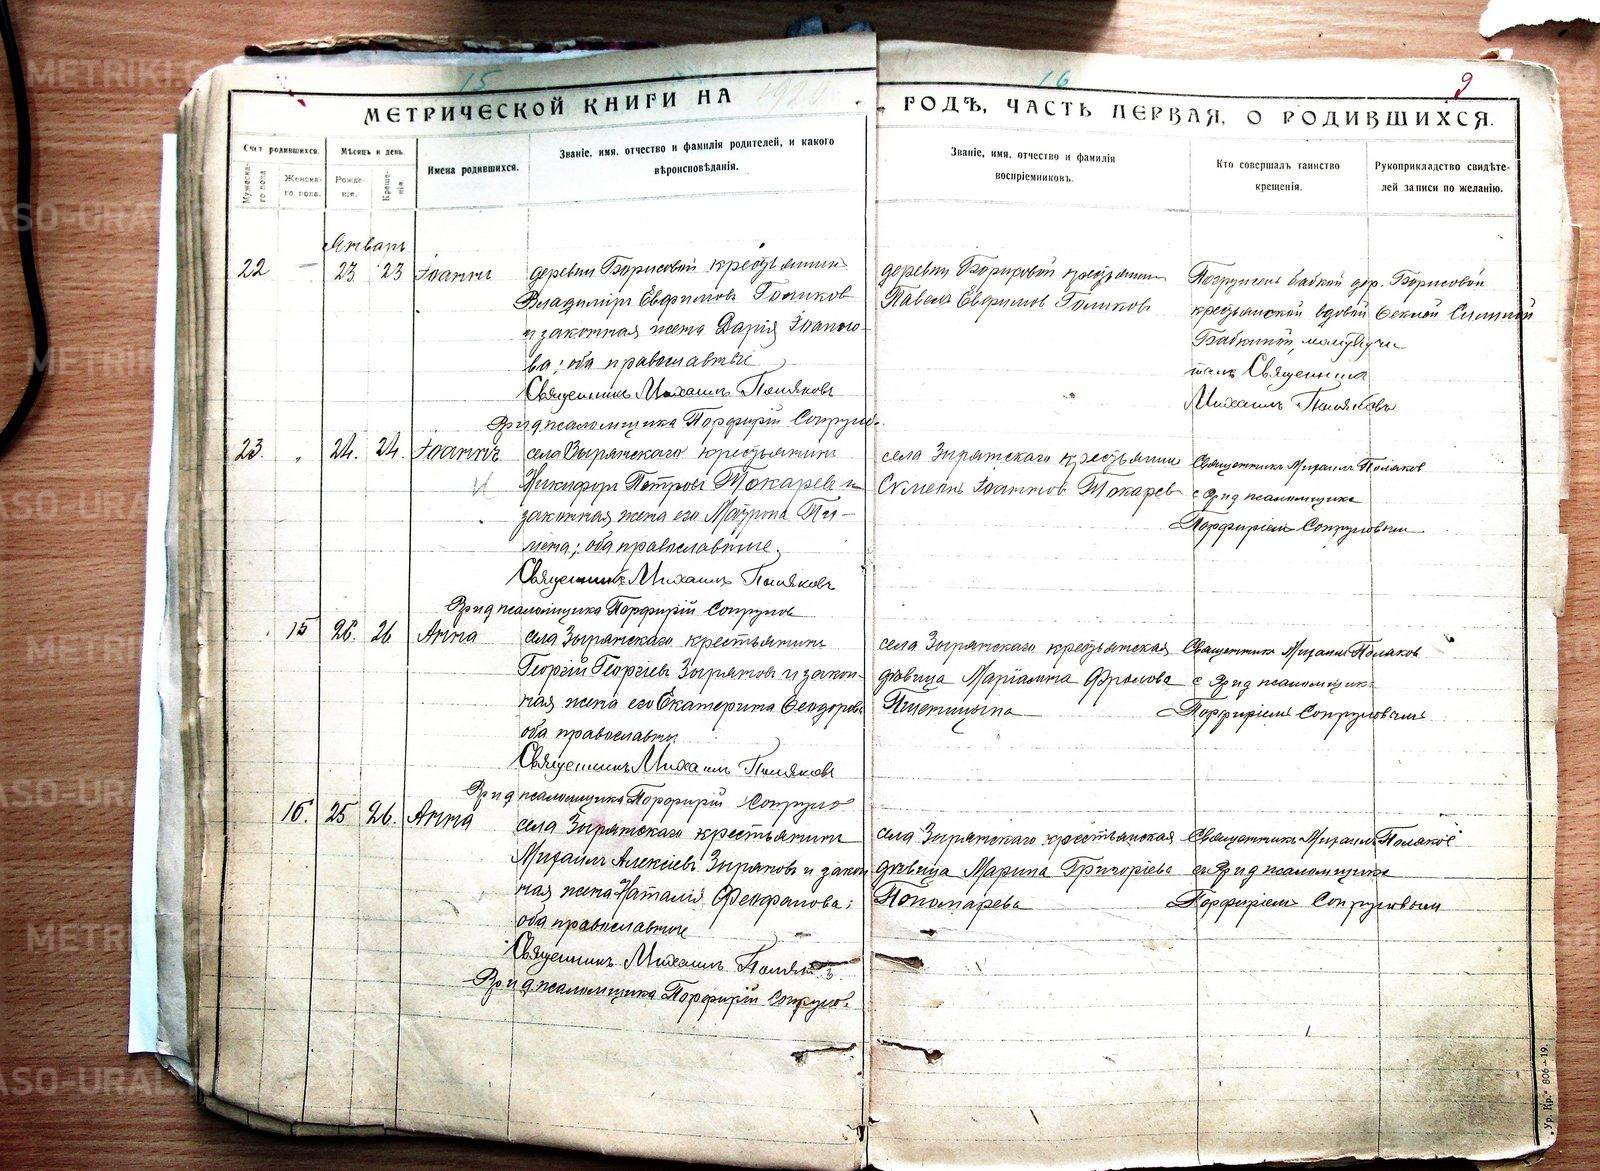 15
16
9
МЕТРИЧЕСКОЙ КНИГИ НА 1920
ГОДѢ, ЧАСТЬ ПЕРВАЯ, О РОДИВШИХСЯ.
Счет родившихся.
Мужеска-го пола
Женска-го пола.
Мѣсяцъ и день.
Рожде-нія.
Креще-нія.
Имена родившихся.
Званіе, имя, отчество и фамилія родителей, и какого
вѣроисповѣданія.
Званіе, имя, отчество и фамилія
воспріемниковъ.
Кто совершалъ таинство
крещенія.
Рукоприкладство свидѣте-
лей записи по желанію.
Январь
22 — 23 23 Іоаннъ
деревни Борисовой крестьянинъ
Владиміръ Евфимовъ Голиковъ
и законная жена Дарія Іоанно-
ва; оба православные
Священникъ Михаилъ Поляковъ
Врид псаломщика Порфирій Сопрунов
деревни Борисовой крестьянинъ
Павелъ Евфимовъ Голиковъ
Погруженъ бабкой дер. Борисовой
крестьянской вдовой Феклой
Бабкиной,
Священника
Михаилъ Поляковъ
23. „ 24. 24. Іоаннъ
села Зырянскаго крестьянинъ
Никифоръ Петровъ Токаревъ и
законная жена его Маврона Пи-
мена; оба православные.
Священникъ Михаилъ Поляковъ
Врид псаломщика Порфирій Сопрунов
села Зырянскаго крестьянин
Симеонъ Іоанновъ Токарев
Священникъ Михаилъ Поляков
с Врид псаломщика
Порфиріемъ Сопруновым
15 26. 26 Анна
села Зырянскаго крестьянинъ
Георгій Георгіевъ Зыряновъ и закон-
ная жена его Екатерина Феодорова
оба православны
Священникъ Михаилъ Поляковъ
Врид псаломщика Порфирій Сопрунов
села Зырянскаго крестьянская
дѣвица Маріамна Фролова
Пшеницына
Священникъ Михаилъ Поляков
с Врид псаломщика
Порфиріемъ Сопруновымъ
16. 25 26. Анна
села Зырянскаго крестьянинъ
Михаилъ Алексіевъ Зыряновъ и закон
ная жена Наталія Феофанова;
оба православные
Священникъ Михаилъ Поляковъ
Врид псаломщика Порфирій Сопрунов.
села Зырянскаго крестьянская
дѣвица Марина Григоріева
Пономарева
Священникъ Михаилъ Поляков
съ Врид псаломщика
Порфиріемъ Сопруновым
„Ур. Кр.“ 806—19.